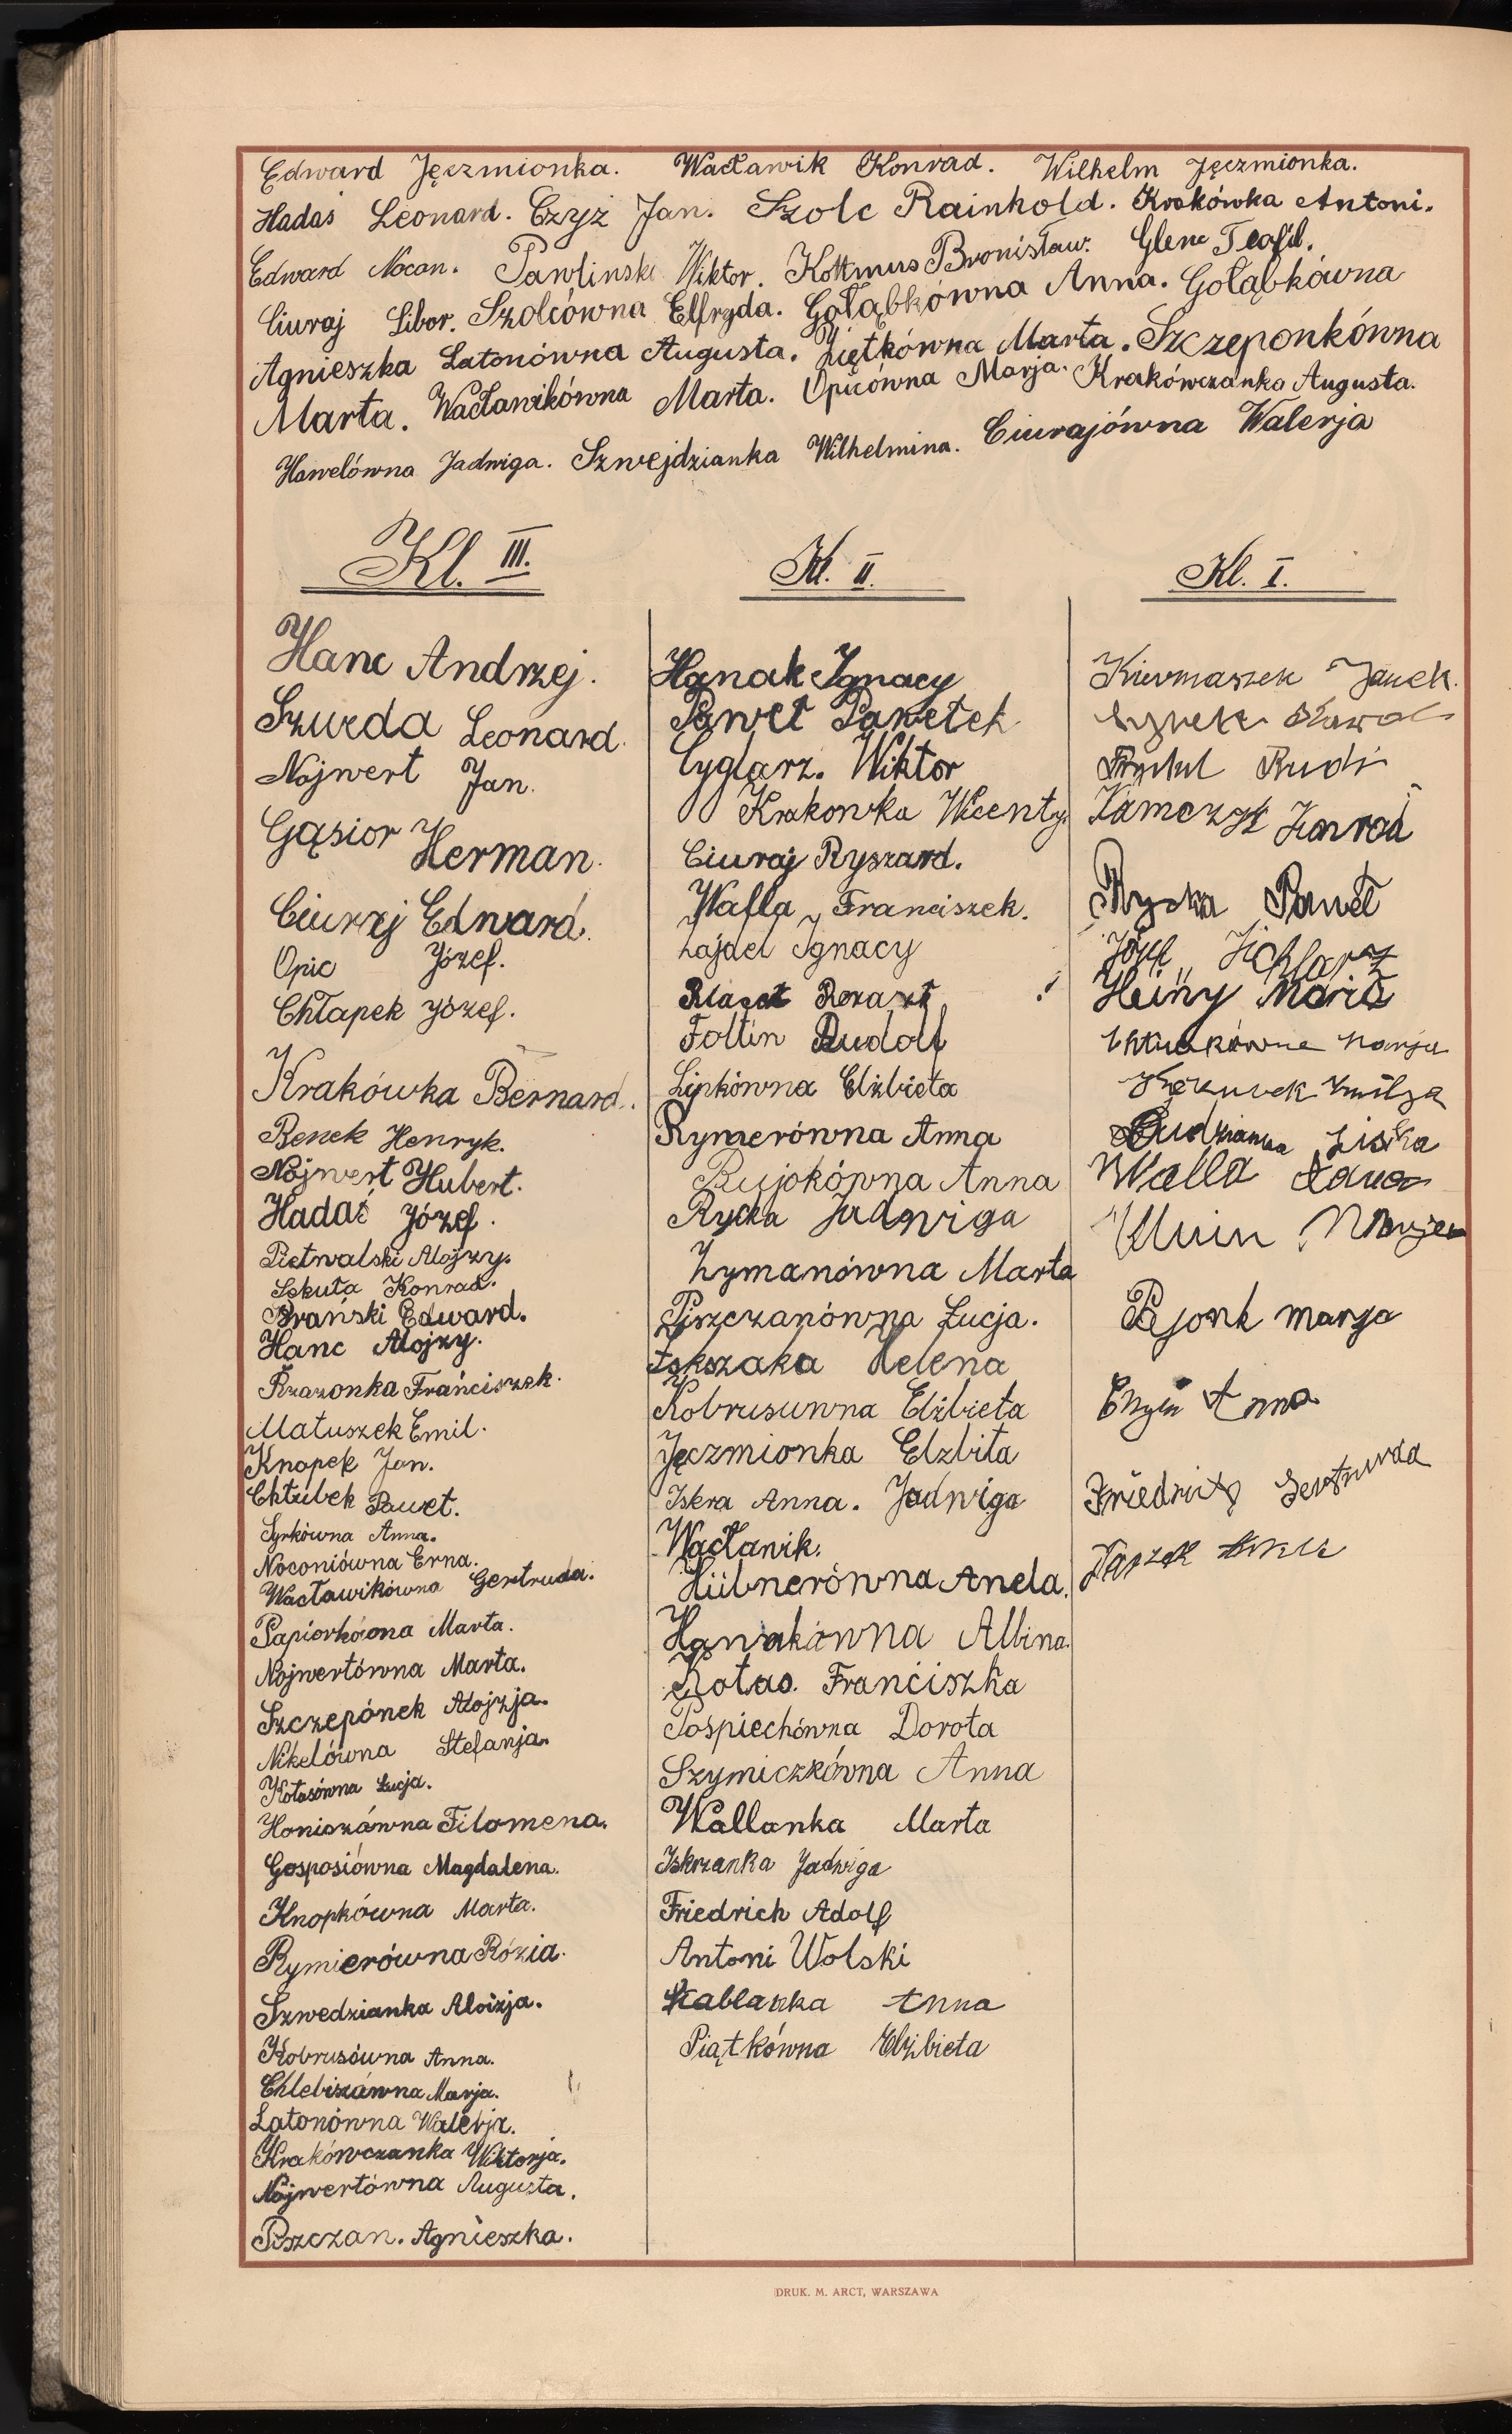 Edward Jęczmionka. Wacławik Konrad. Wilhelm Jęczmionka.
Hadaś Leonard. Czyż Jan. Szolc Rainhold. Krakówka Antoni.
Edward Nocon. Pawlinski Wiktor. Kottmus Bronisław. Glenc Teofil.
Ciuraj Libor. Szolcówna Elfryda. Gołąbkówna Anna. Gołąbkówna
Agnieszka Latonówna Augusta. Ziętkówna Marta. Szczeponkówna
Marta. Wacławikówna Marta. Opicówna Marja. Krakówczanka Augusta.
Hawelówna Jadwiga. Szwejdzianka Wilhelmina. Ciurajówna Walerja
Kl. III.
Hanc Andrzej.
Szweda Leonard.
Nojwert Jan.
Gąsior Herman.
Ciuraj Edward.
Opic Józef.
Chłapek Józef.
Krakówka Bernard.
Benek Henryk.
Nojwert Hubert.
Hadaś Józef.
Pietwalski Alojzy.
Sekuła Konrad.
Brański Edward.
Hanc Alojzy.
Rzazonka Franciszek.
Matuszek Emil.
Knopek Jan.
Chłubek Paweł.
Syrkówna Anna.
Noconiówna Erna.
Wacławikówna Gertruda.
Papiorkówna Marta.
Nojwertówna Marta.
Szczepónek Alojzja.
Nikelówna Stefanja.
Kotasówna Łucja.
Honiszówna Filomena.
Gosposiówna Magdalena.
Knopkówna Marta.
Rymierówna Rózia.
Szwedzianka Aloizja.
Kobrusówna Anna.
Chlebiszówna Marja.
Latonówna Walerja.
Krakówczanka Wiktorja.
Nojwertówna Augusta.
Piszczan. Agnieszka.
Kl. II.
Hanak Ignacy
Paweł Pawełek
Cyglarz. Wiktor
Krakowka Wicenty
Ciuraj Ryszard.
Walla Franciszek.
Zająel Ignacy
Foltin Rudolf
Lipkówna Elżbieta
Rymerówna Anna
Bujokówna Anna
Rycka Jadwiga
Zymanówna Marta
Piszczanówna Łucja.
Helena
Kobrusuwna Elżbieta
Jęczmionka Elzbita
Iskra Anna. Jadwiga
Wacławik.
Hübnerówna Anela.
Hanakówna Albina.
Kotas. Franciszka
Pośpiechówna Dorota
Szymiczkówna Anna
Wallanka Marta
Iskrzanka Jadwiga
Friedrich Adolf
Antoni Wolski
Anna
Piątkówna Elżbieta
Kl. I.
Kiermaszek Janek.
Rudi
Paweł
Józef
Heiny Maria
Marja
Walla
Bjonk marya
Anna